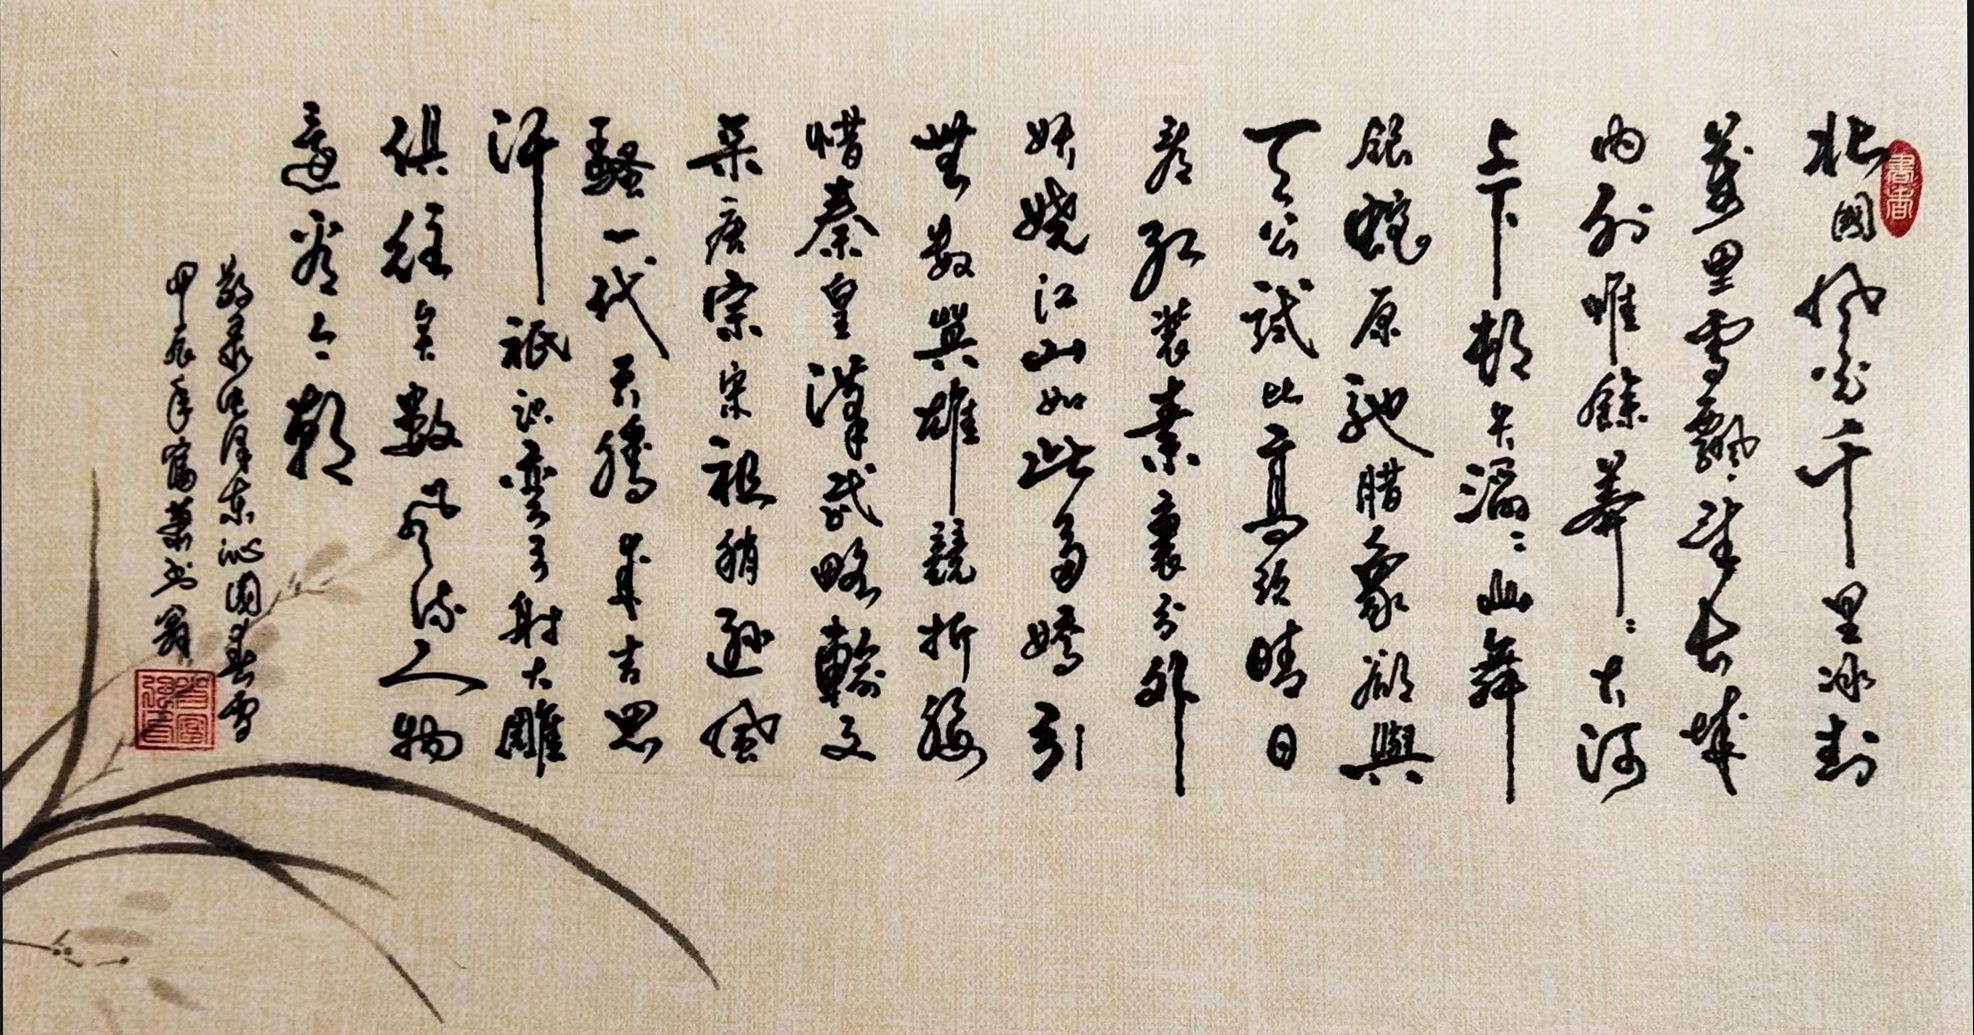 書香
北國風光千里冰封
萬里雪飄望長城
内外唯餘莽〻大河
上下頓失滔〻山舞
銀蛇原馳腊象欲與
天公試比高須晴日
看紅裝素裹分外
妖嬈江山如此多嬌引
無數英雄競折腰
惜秦皇漢武略輸文
采唐宗宋祖稍遜風
騷一代天驕成吉思
汗祇识彎弓射大雕
俱往矣數風流人物
還看今朝
敬录毛泽东沁园春雪
甲辰年富